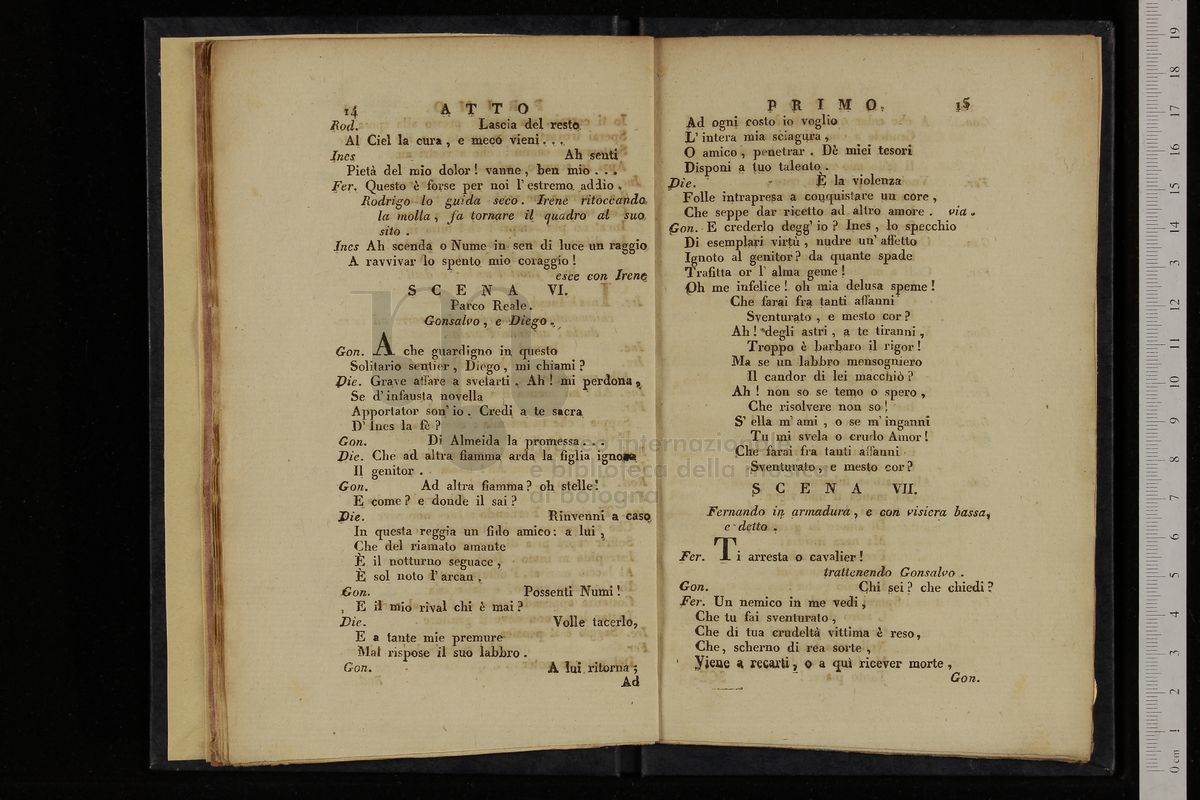 14 ATTO
Rod. Lascia del resto
Al Ciel la cura, e meco vieni...
Ines Ah senti
Pietà del mio dolor! vanne, ben mio...
Fer. Questo è forse per noi l'estremo addio.
Rodrigo lo guida seco. Irene ritoccando
la molla, fa tornare il quadro al suo
sito.
Ines Ah scenda o Nume in sen di luce un raggio
A ravvivar lo spento mio coraggio!
esce con Irene
SCENA VI.
Parco Reale.
Gonsalvo, e Diego.
Gon. A che guardigno in questo
Solitario sentier, Diego, mi chiami?
Die. Grave affare a svelarti. Ah! mi perdona,
Se d'infausta novella
Apportator son' io. Credi a te sacra
D' Ines la fè?
Gon. Di Almeida la promessa...
Die. Che ad altra fiamma arda la figlia ignora
Il genitor.
Gon. Ad altra fiamma? oh stelle!
E come? e donde il sai?
Die. Rinvenni a caso
In questa reggia un fido amico: a lui,
Che del riamato amante
È il notturno seguace,
È sol noto l'arcan.
Gon. Possenti Numi!
E il mio rival chi è mai?
Die. Volle tacerlo,
E a tante mie premure
Mal rispose il suo labbro.
Gon. A lui ritorna;
Ad
PRIMO. 15
Ad ogni costo io voglio
L'intera mia sciagura,
O amico, penetrar. Dè miei tesori
Disponi a tuo talento.
Die. È la violenza
Folle intrapresa a conquistare un core,
Che seppe dar ricetto ad altro amore. via.
Gon. E crederlo degg' io? Ines, lo specchio
Di esemplari virtù, nudre un' affetto
Ignoto al genitor? da quante spade
Trafitta or l' alma geme!
Oh me infelice! oh mia delusa speme!
Che farai fra tanti affanni
Sventurato, e mesto cor?
Ah! degli astri, a te tiranni,
Troppo è barbaro il rigor!
Ma se un labbro mensogniero
Il candor di lei macchiò?
Ah! non so se temo o spero,
Che risolvere non so!
S' ella m' ami, o se m' inganni
Tu mi svela o crudo Amor!
Che farai fra tanti affanni
Sventurato, e mesto cor?
SCENA VII.
Fernando in armadura, e con visiera bassa,
e detto.
Fer. Ti arresta o cavalier!
trattenendo Gonsalvo.
Gon. Chi sei? che chiedi?
Fer. Un nemico in me vedi,
Che tu fai sventurato,
Che di tua crudeltà vittima è reso,
Che, scherno di rea sorte,
Viene a recarti, o a quì ricever morte,
Gon.
internazionale
e biblioteca della musica
di bologna
0 cm 1 2 3 4 5 6 7 8 9 10 11 12 13 14 15 16 17 18 19